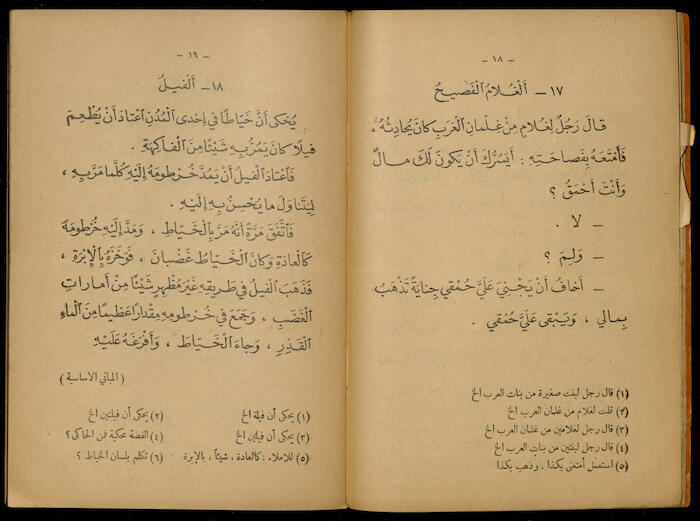 - ١٨ -
١٧ - اَلْغُلَامُ الْفَصِيحُ
قَالَ رَجُلٌ لِغُلَامٍ مِنْ غِلْمَانِ الْعَرَبِ كَانَ يُحَادِثُهُ ،
فَأَمْتَعَهُ بِفَصَاحَتِهِ : أَيَسُرُّكَ أَنْ يَكُونَ لَكَ مَالٌ
وَأَنْتَ أَحْمَقُ ؟
- لَا .
- وَلِمَ ؟
- أَخَافُ أَنْ يَجْنِيَ عَلَيَّ حُمْقِي جِنَايَةً تَذْهَبُ
بِمَالِي ، وَيَبْقَى عَلَيَّ حُمْقِي .
(١) قال رجل لبنت صغيرة من بنات العرب الخ
(٢) قلت لغلام من غلمان العرب الخ
(٣) قال رجل لغلامين من غلمان العرب الخ
(٤) قال رجل لبنتين من بنات العرب الخ
(٥) استعمل أمتعنى بكذا . وذهب بكذا
- ١٩ -
١٨ - اَلْفِيلُ
يُحْكَى أَنَّ خَيَّاطًا فِي إِحْدَى الْمُدُنِ اعْتَادَ أَنْ يُطْعِمَ
فِيلًا كَانَ يَمُرُّ بِهِ شَيْئًا مِنَ الْفَاكِهَةِ .
فَاعْتَادَ الْفِيلُ أَنْ يَمُدَّ خُرْطُومَهُ إِلَيْهِ كُلَّمَا مَرَّ بِهِ ،
لِيَتَنَاوَلَ مَا يُحْسِنُ بِهِ إِلَيْهِ .
فَاتَّفَقَ مَرَّةً أَنَّهُ مَرَّ بِالْخَيَّاطِ ، وَمَدَّ إِلَيْهِ خُرْطُومَهُ
كَالْعَادَةِ وَكَانَ الْخَيَّاطُ غَضْبَانَ ، فَوَخَزَهُ بِالْإِبْرَةِ ،
فَذَهَبَ الْفِيلُ فِي طَرِيقِهِ غَيْرَ مُظْهِرٍ شَيْئًا مِنْ أَمَارَاتِ
الْغَضَبِ ، وَجَمَعَ فِي خُرْطُومِهِ مِقْدَارًا عَظِيمًا مِنَ الْمَاءِ
الْقَذِرِ ، وَجَاءَ الْخَيَّاطَ ، وَأَفْرَغَهُ عَلَيْهِ
( المبانى الاساسية )
(١) يحكى أن فيلة الخ (٢) يحكى أن فيلتين الخ
(٣) يحكى أن فيلين الخ (٤) القصة محكية فمن الحاكى ؟
(٥) للاملاء : كالعادة ، شيئاً ، بالإبرة (٦) تكلم بلسان الخياط ؟